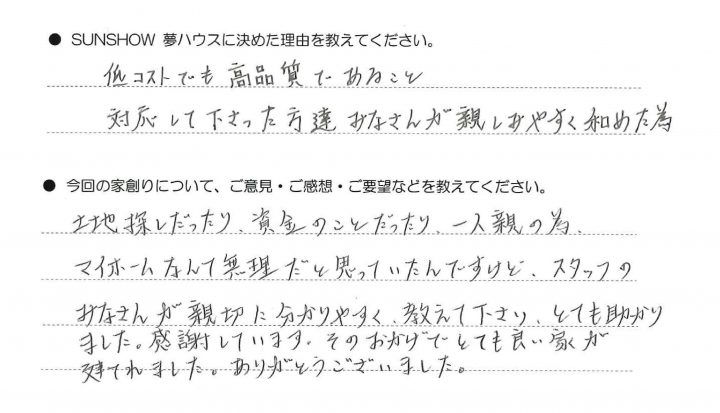 ● SUNSHOW 夢ハウスに決めた理由を教えてください。
低コストでも高品質であること
対応して下さった方達みなさんが親しみやすく和めた為
● 今回の家創りについて、ご意見・ご感想・ご要望などを教えてください。
土地探しだったり、資金のことだったり、一人親の為、
マイホームなんて無理だと思っていたんですけど、スタッフの
みなさんが親切に分かりやすく、教えて下さり、とても助かり
ました。感謝しています。そのおかげでとても良い家が
建てれました。ありがとうございました。